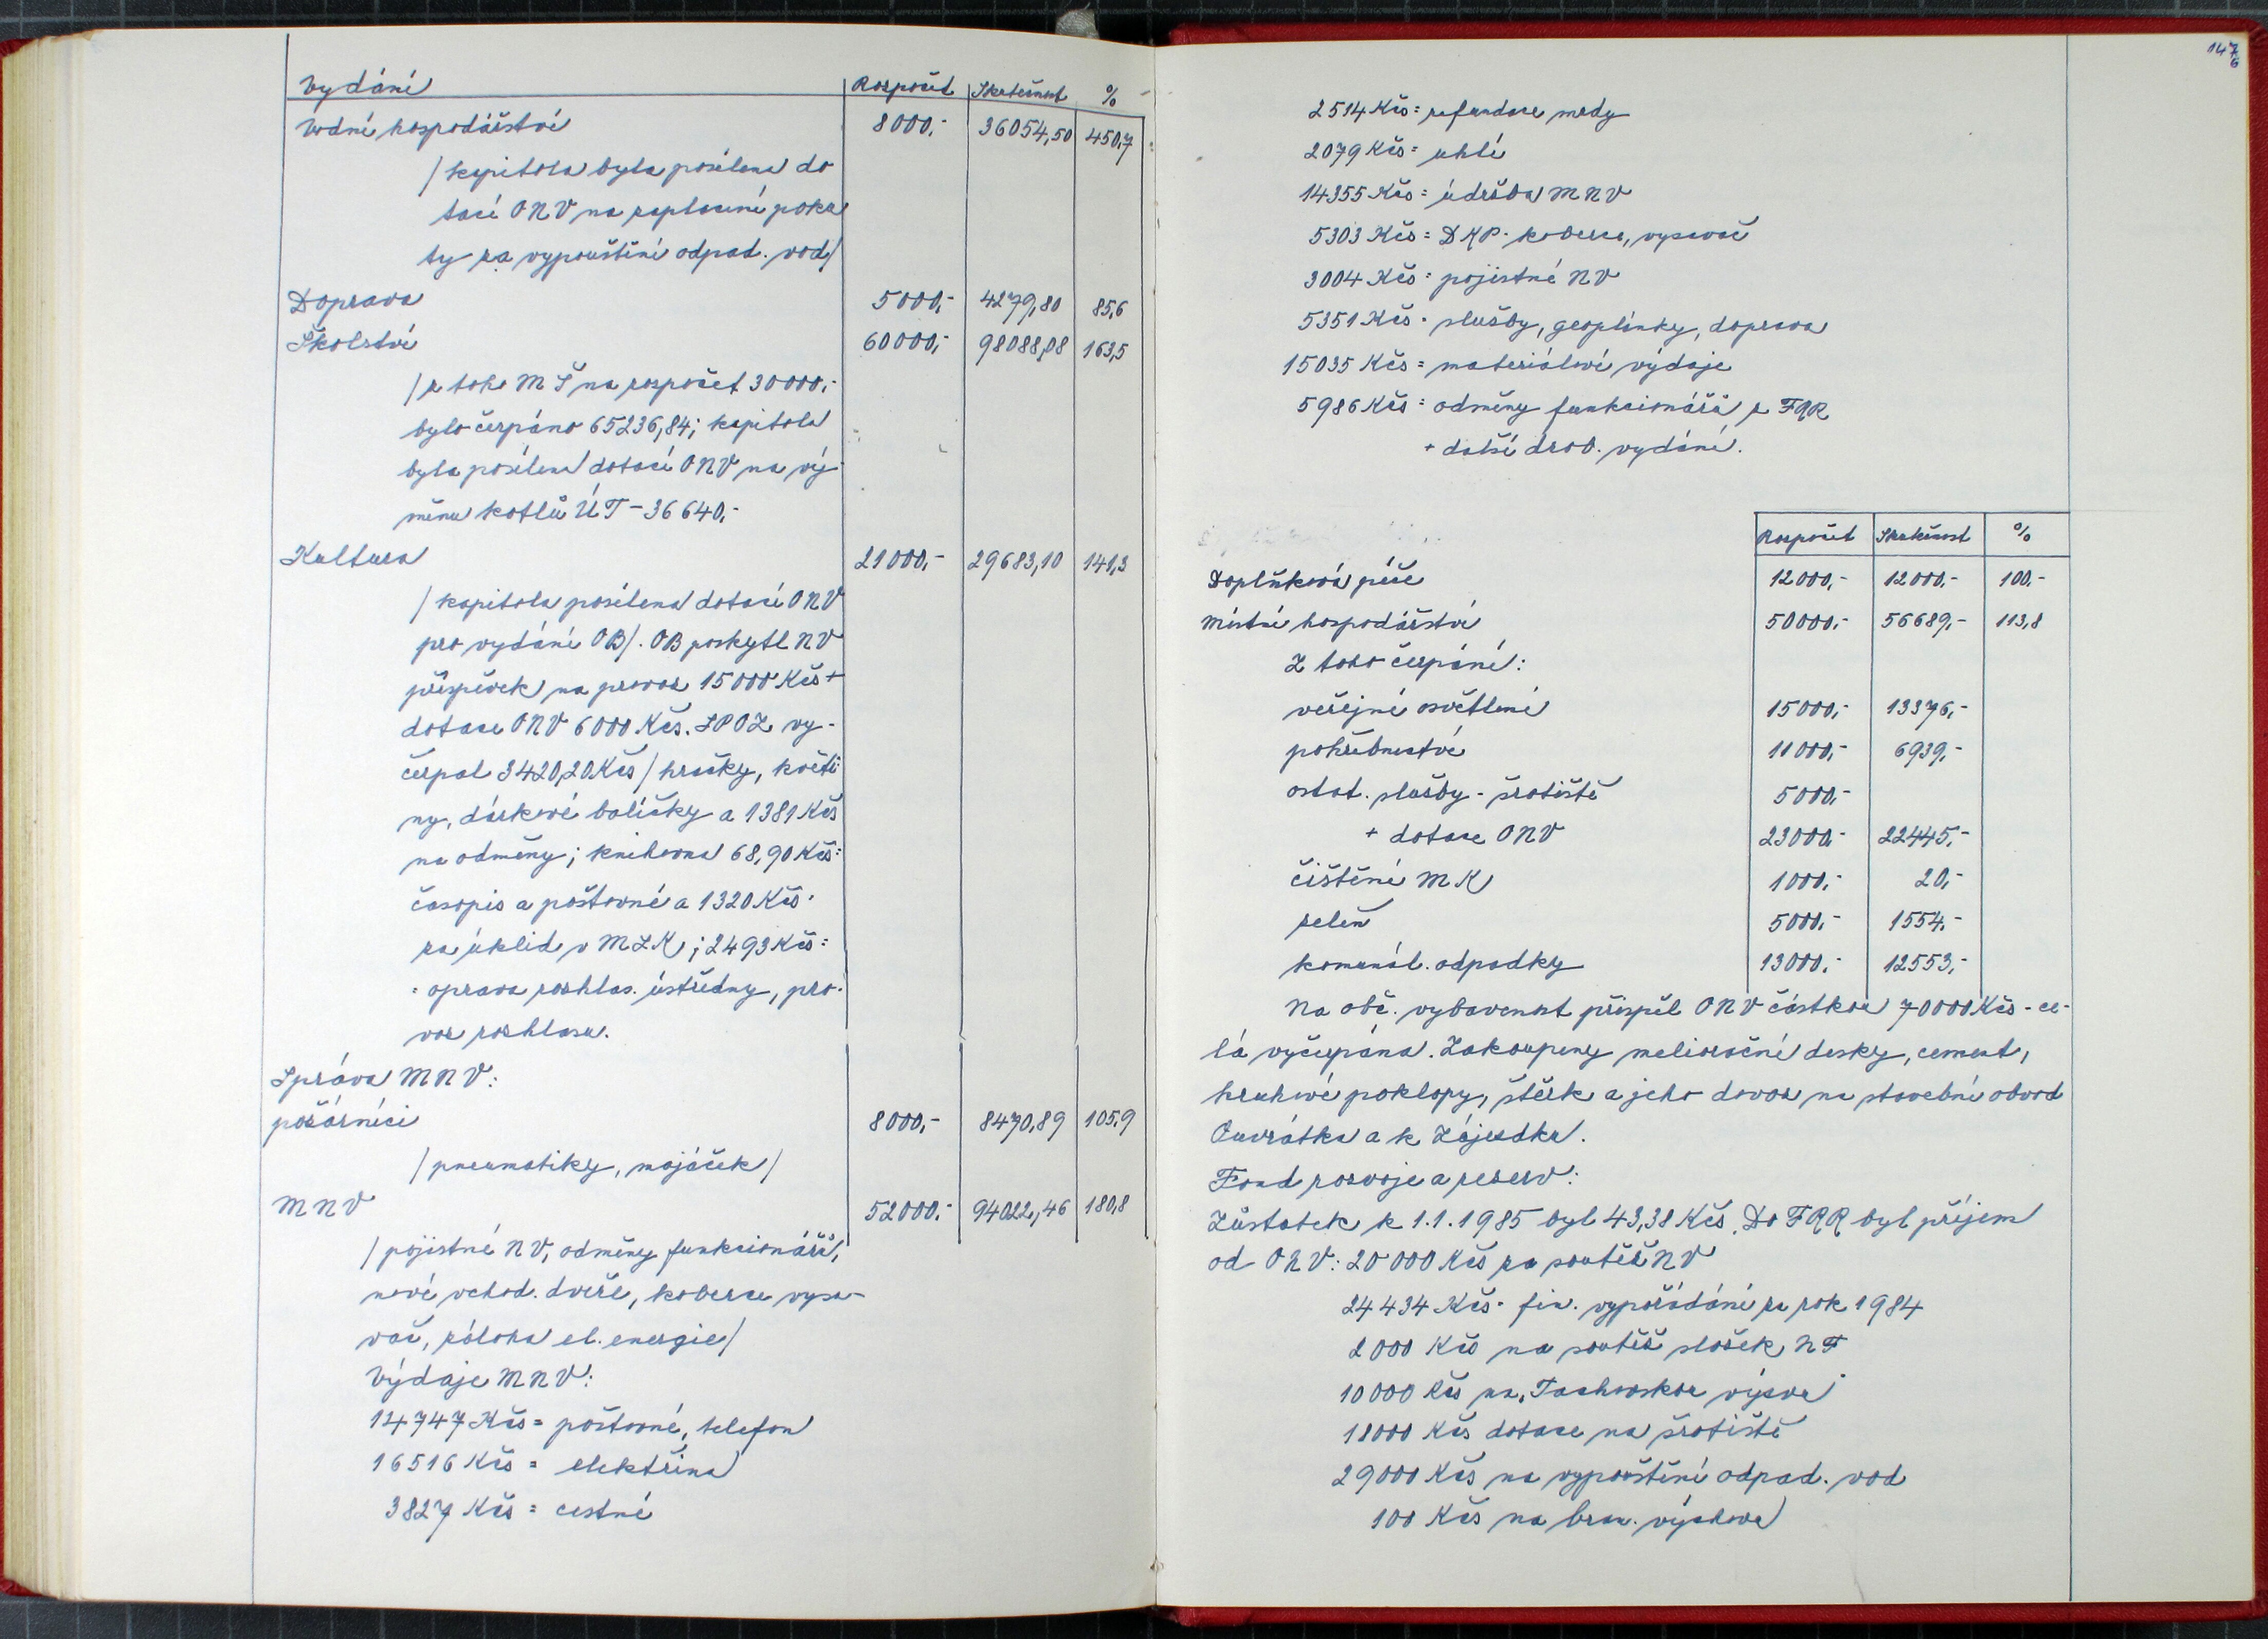 Vydání Rozpočet Skutečnost %
Vodní hospodářství 8000,- 36054,50 450,7
/kapitola byla posílena do
tací ONV na zaplacení poku
ty za vypouštění odpad. vod/
Doprava 5000,- 4279,80 85,6
Školství 60000,- 98088,08 163,5
/z toho MŠ na rozpočet 30000,-
bylo čerpáno 65236,84; kapitola
byla posílena dotací ONV na vý
měnu kotlů ÚT - 36640,-
Kultura 21000,- 29683,10 141,3
/kapitola posílena dotací ONV
pro vydání OB/. OB poskytl NV
příspěvek na provoz 15000 Kčs +
dotace ONV 6000 Kčs. SPOZ vy-
čerpal 3420,20 Kčs /hračky, květi
ny, dárkové balíčky a 1381 Kčs
na odměny; knihovna 68,90 Kčs =
časopis a poštovné a 1320 Kčs -
za úklid v MLK; 2493 Kčs =
= oprava rozhlas. ústředny, pro-
voz rozhlasu.
Správa MNV:
požárníci 8000,- 8470,89 105,9
/pneumatiky, majáček/
MNV 52000,- 94022,46 180,8
/pojistné NV, odměny funkcionářů,
nové vchod. dveře, koberce vysa-
vač, záloha el. energie/
Výdaje MNV:
14747 Kčs = poštovné, telefon
16516 Kčs = elektřina
3827 Kčs = cestné
147
2514 Kčs = refundace mzdy
2079 Kčs = uhlí
14355 Kčs = údržba MNV
5303 Kčs = DKP - koberce, vysavač
3004 Kčs = pojistné NV
5351 Kčs - služby, geoplánky, doprava
15035 Kčs = materiálové výdaje
5986 Kčs = odměny funkcionářů z FRR
+ další drob. vydání.
Rozpočet Skutečnost %
Doplňková péče 12000,- 12000,- 100,-
Místní hospodářství 50000,- 56689,- 113,8
Z toho čerpání:
veřejné osvětlení 15000,- 13376,-
pohřebnictví 11000,- 6939,-
ostat. služby - šrotiště 5000,-
+ dotace ONV 23000,- 22445,-
čištění MK 1000,- 20,-
zeleň 5000,- 1554,-
komunál. odpadky 13000,- 12553,-
Na obč. vybavenost přispěl ONV částkou 70000 Kčs - ce-
lá vyčerpána. Zakoupeny meliorační desky, cement,
hruhové poklopy, štěrk a jeho dovoz na stavební obvod
Ouvrátka a k Zájezdku.
Fond rozvoje a rezerv:
Zůstatek k 1.1.1985 byl 43,38 Kčs. Do FRR byl příjem
od ONV: 20000 Kčs za soutěž NV
24434 Kčs - fin. vypořádání za rok 1984
2000 Kčs na soutěž složek NF
10000 Kčs na "Tachovskou výzvu"
18000 Kčs dotace na šrotiště
29000 Kčs na vypouštění odpad. vod
100 Kčs na bran. výchovu